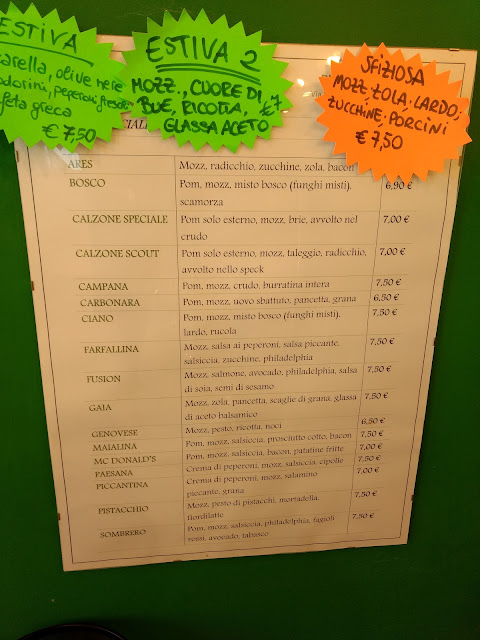 ESTIVA
olive nere
peperoni freschi
feta greca
€ 7,50
ESTIVA 2
MOZZ., CUORE DI
BUE, RICOTTA,
€7
GLASSA ACETO
SFIZIOSA
MOZZ, ZOLA, LARDO,
ZUCCHINE, PORCINI
€ 7,50
ARES Mozz, radicchio, zucchine, zola, bacon
BOSCO Pom, mozz, misto bosco (funghi misti), 6,90 €
scamorza
CALZONE SPECIALE Pom solo esterno, mozz, brie, avvolto nel 7,00 €
crudo
CALZONE SCOUT Pom solo esterno, mozz, taleggio, radicchio, 7,00 €
avvolto nello speck
CAMPANA Pom, mozz, crudo, burratina intera 7,50 €
CARBONARA Pom, mozz, uovo sbattuto, pancetta, grana 6,50 €
CIANO Pom, mozz, misto bosco (funghi misti), 7,50 €
lardo, rucola
FARFALLINA Mozz, salsa ai peperoni, salsa piccante, 7,50 €
salsiccia, zucchine, philadelphia
FUSION Mozz, salmone, avocado, philadelphia, salsa 7,50 €
di soia, semi di sesamo
GAIA Mozz, zola, pancetta, scaglie di grana, glassa 7,50 €
di aceto balsamico
GENOVESE Mozz, pesto, ricotta, noci 6,50 €
MAIALINA Pom, mozz, salsiccia, prosciutto cotto, bacon 7,50 €
MC DONALD'S Pom, mozz, salsiccia, bacon, patatine fritte 7,00 €
PAESANA Crema di peperoni, mozz, salsiccia, cipolle 7,50 €
PICCANTINA Crema di peperoni, mozz, salamino 7,00 €
piccante, grana
PISTACCHIO Mozz, pesto di pistacchi, mortadella, 7,50 €
fiordilatte
SOMBRERO Pom, mozz, salsiccia, philadelphia, fagioli 7,50 €
rossi, avocado, tabasco